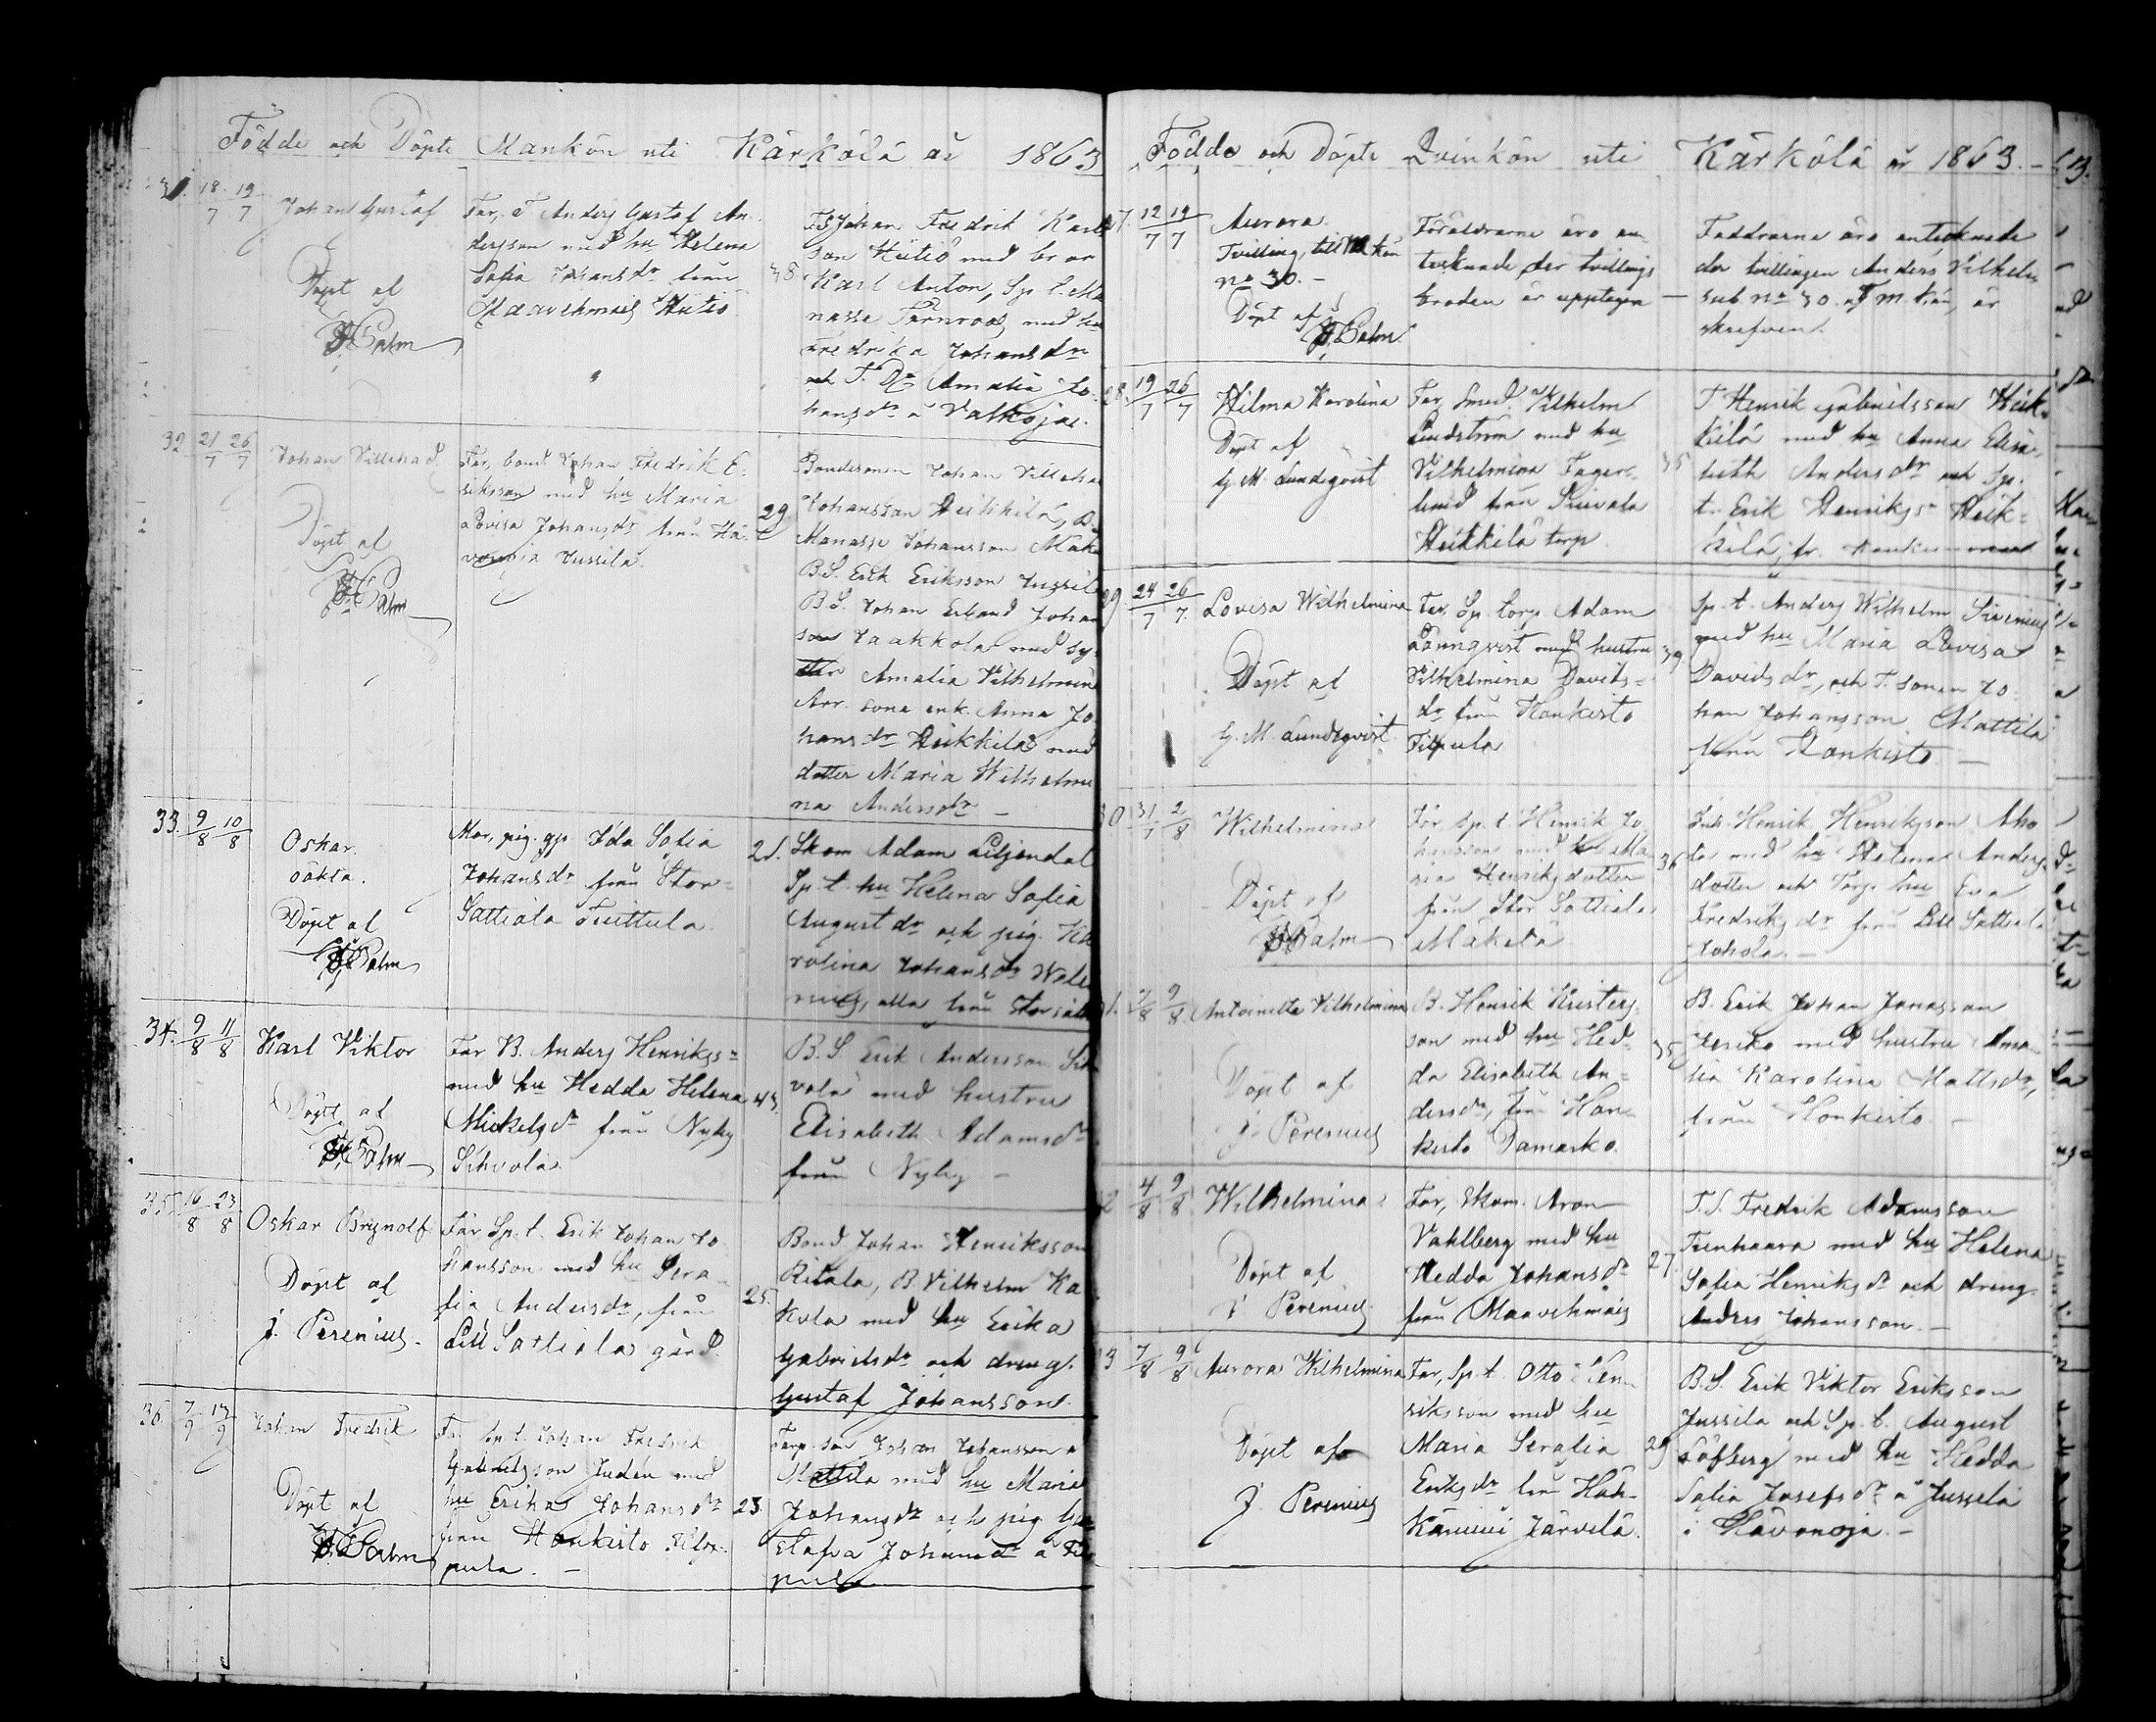 Födde och Döpte Mankön uti Kärkölä år 1863
31. 18/7 19/7
Johan Gustaf
Döpt af
Palm
Far, T. Anders Gustaf An-
dersson med hu Helena
Sofia Johansdr från
Maavehmais Hutio
38
Johan Fredrik Karls
son Hutio med bror
Karl Anton, Sp. t. Ma
nasse med hu
Fredrika Johansdr
och T. Dr Amalia Jo-
hansdr a Valkojar.
32. 21/7 26/7
Johan Villehad
Döpt af
Palm
Far, bond. Johan Fredrik E-
riksson med hu Maria
Lovisa Johansdr från Hä-
vänoja Jussila.
29.
Bondesonen Johan Villeha
Johansson Heikkilä, B.
Manasse Johansson Mäke
B.S. Erik Eriksson Jussila
B.S. Johan Erland Johan
son Jaakkola med sy-
ster Amalia Vilhelmina
Arr. sone enk. Anna Jo-
hansdr Heikkilä med
dotter Maria Wilhelmi
na Andersdr —
33. 9/8 10/8
Oskar.
oäkta.
Döpt af
Palm
Mor, pig. Ida Sofia
Johansdr från Stor-
Sattiala Tuittula.
21.
Skom Adam Liljendal
Sp. t. hu Helena Sofia
Augustdr och pig. Ka
rolina Johansdr Wale
nius, alla från Storsatt
34. 9/8 11/8
Karl Viktor
Döpt af
Palm
Far B. Anders Henrikss-
med hu Hedda Helena
Mickelsdr från Nyby
Sihvola
43.
B.S. Erik Andersson Sih
vola med hustru
Elisabeth Adamsdr
från Nyby —
35. 16/8 23/8
Oskar Brynolf
Döpt af
J. Perenius.
Far Sp. t. Erik Johan Jo-
hansson med hu Sera-
fia Andersdr, från
Lill Sattiala gård.
25.
Bond Johan Henriksson
Ritala, B. Vilhelm Ka
kola med hu Erika
Gabrielsdr och dreng.
Gustaf Johansson.
36. 7/9 13/9
Johan Fredrik
Döpt af
Palm
Far Sp. t. Johan Fredrik
Gabrielsson Judén med
hu Erika Johansdr
från Honkisto Filp-
pula. —
23.
Torp. son Johan Johansson a
Mattila med hu Maria
Johansdr och pig Gu
stafva Johansdr a Filp
pula
Födde och Döpte Qvinkön uti Kärkölä år 1863. —
27. 12/7 19/7
Aurora.
Tvilling, till M. kön
no 30. —
Döpt af
Palm.
Föräldrarne äro an-
tecknade der tvillings
broden är upptagen —
Faddrarne äro antecknade
der tvillingen Anders Vilhelm
sub no 30. af m. kön, är
skrefven.
28. 19/7 26/7
Hilma Karolina
Döpt af
G. M. Lundqvist
Far, Smed. Vilhelm
Lindström med hu
Vilhelmina Fager-
lund från
Heikkilä torp.
35
T. Henrik Gabrielsson Heik-
kilä med hu Anna Elisa-
beth Andersdr och Sp.
t. Erik Henrikss. Heik-
kilä, fr.
29 24/7 26/7
Lovisa Wilhelmina
Döpt af
G. M. Lundqvist
Far, Sp. torp Adam
Lönnqvist med hustru
Vilhelmina Davids-
dr från Honkisto
Filpula
39
Sp. t. Anders Wilhelm Sirenius
med hu Maria Lovisa
Davidsdr, och T. sonen Jo-
han Johansson Mattila
från Honkisto —
30 31/7 2/8
Wilhelmina
Döpt af
Palm
Far Sp. t. Henrik Jo-
hansson med hu Ma
ria Henriksdotter
från Stor Sattiala
Mäkelä
36
Inh. Henrik Henriksson Aho
la med hu Helena Anders
dotter och Torp. hu Eva
Fredriksdr från Lill Sattiala
Johola. —
31. 7/8 9/8
Antoinetta Vilhelmina
Döpt af
J. Perenius
B. Henrik Kristers-
son med hu Hed-
da Elisabeth An-
dersdr, från Hon-
kisto Damasko.
35
B. Erik Johan Jonasson
Jeriko med hustru Ama-
lia Karolina Mattsdr,
från Honkisto —
32 4/8 9/8
Wilhelmina
Döpt af
J. Perenius.
Far, Skom. Aron
Vahlberg med hu
Hedda Johansdr
från Maavehmais
27.
T.S. Fredrik Adamsson
Teenhaara med hu Helena
Sofia Henriksdr och dreng
Anders Johansson. —
33 7/8 9/8
Aurora Wilhelmina
Döpt af
J. Perenius
Far, Sp. t. Otto Hen-
riksson med hu
Maria Serafia
Eriksdr från Häh-
käniemi Järvelä.
29
B.S. Erik Viktor Eriksson
Jussila och Sp. t. August
Löfberg med hu Hedda
Sofia Josefsdr a Jussila
i Hävänoja. —